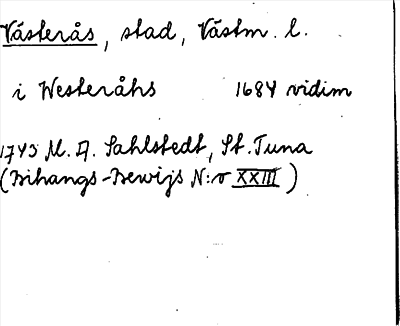 Västerås, stad, Västm. l.
i Westeråhs 1684 vidim
1743 M. A. Sahlstedt, St. Tuna
(Bihangs-Bewijs N:o XXIII)